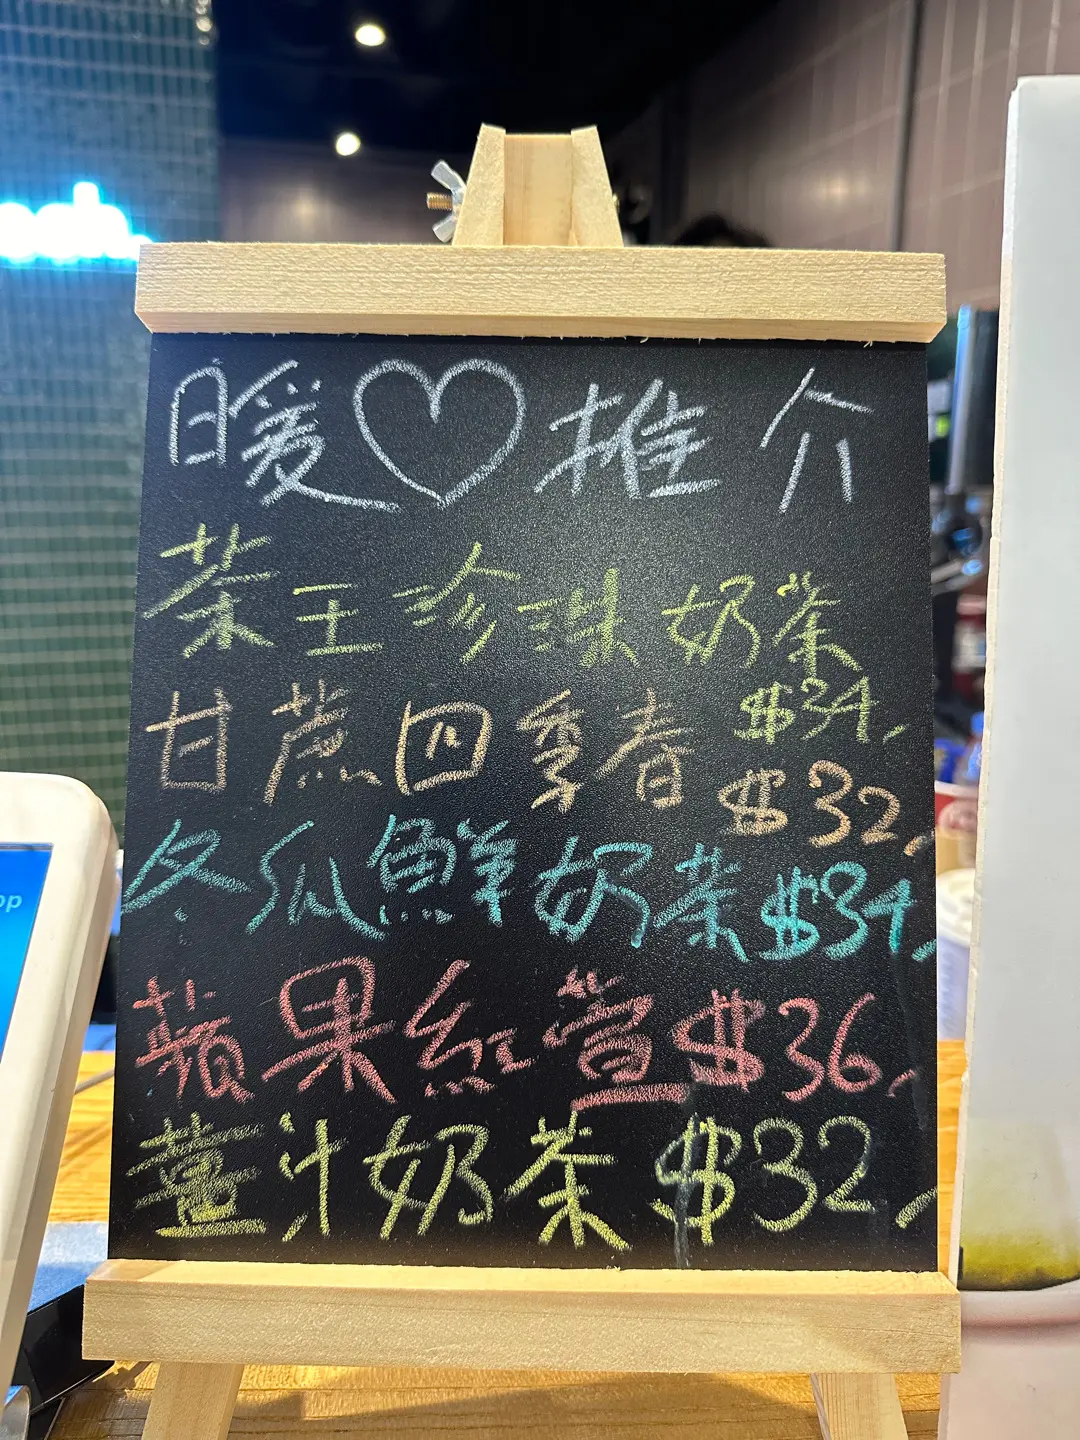 暖♡推介
茶王珍珠奶茶
$34.
甘蔗四季春
$32.
冬瓜鮮奶茶 $34.
蘋果紅萱 $36.
薑汁奶茶 $32.
op